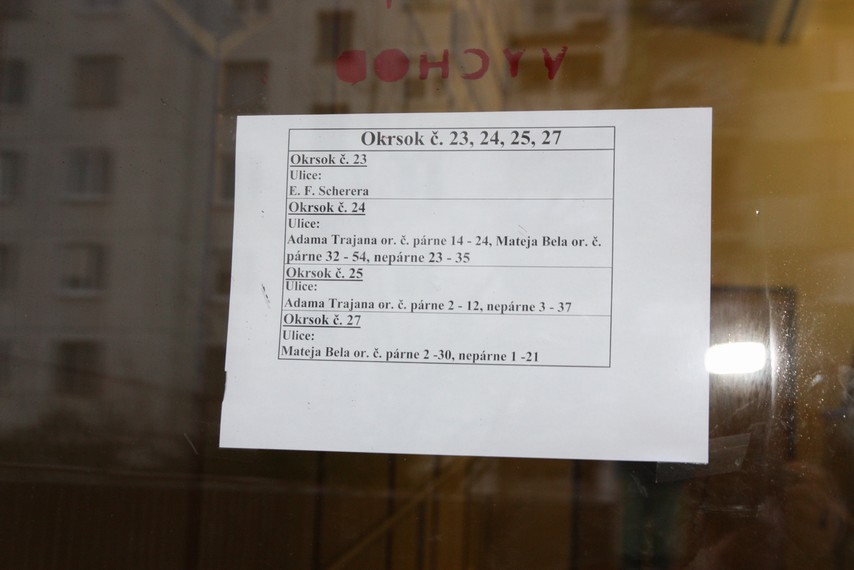 VÝCHOD
Okrsok č. 23, 24, 25, 27
Okrsok č. 23
Ulice:
E. F. Scherera
Okrsok č. 24
Ulice:
Adama Trajana or. č. párne 14 - 24, Mateja Bela or. č.
párne 32 - 54, nepárne 23 - 35
Okrsok č. 25
Ulice:
Adama Trajana or. č. párne 2 - 12, nepárne 3 - 37
Okrsok č. 27
Ulice:
Mateja Bela or. č. párne 2 -30, nepárne 1 -21